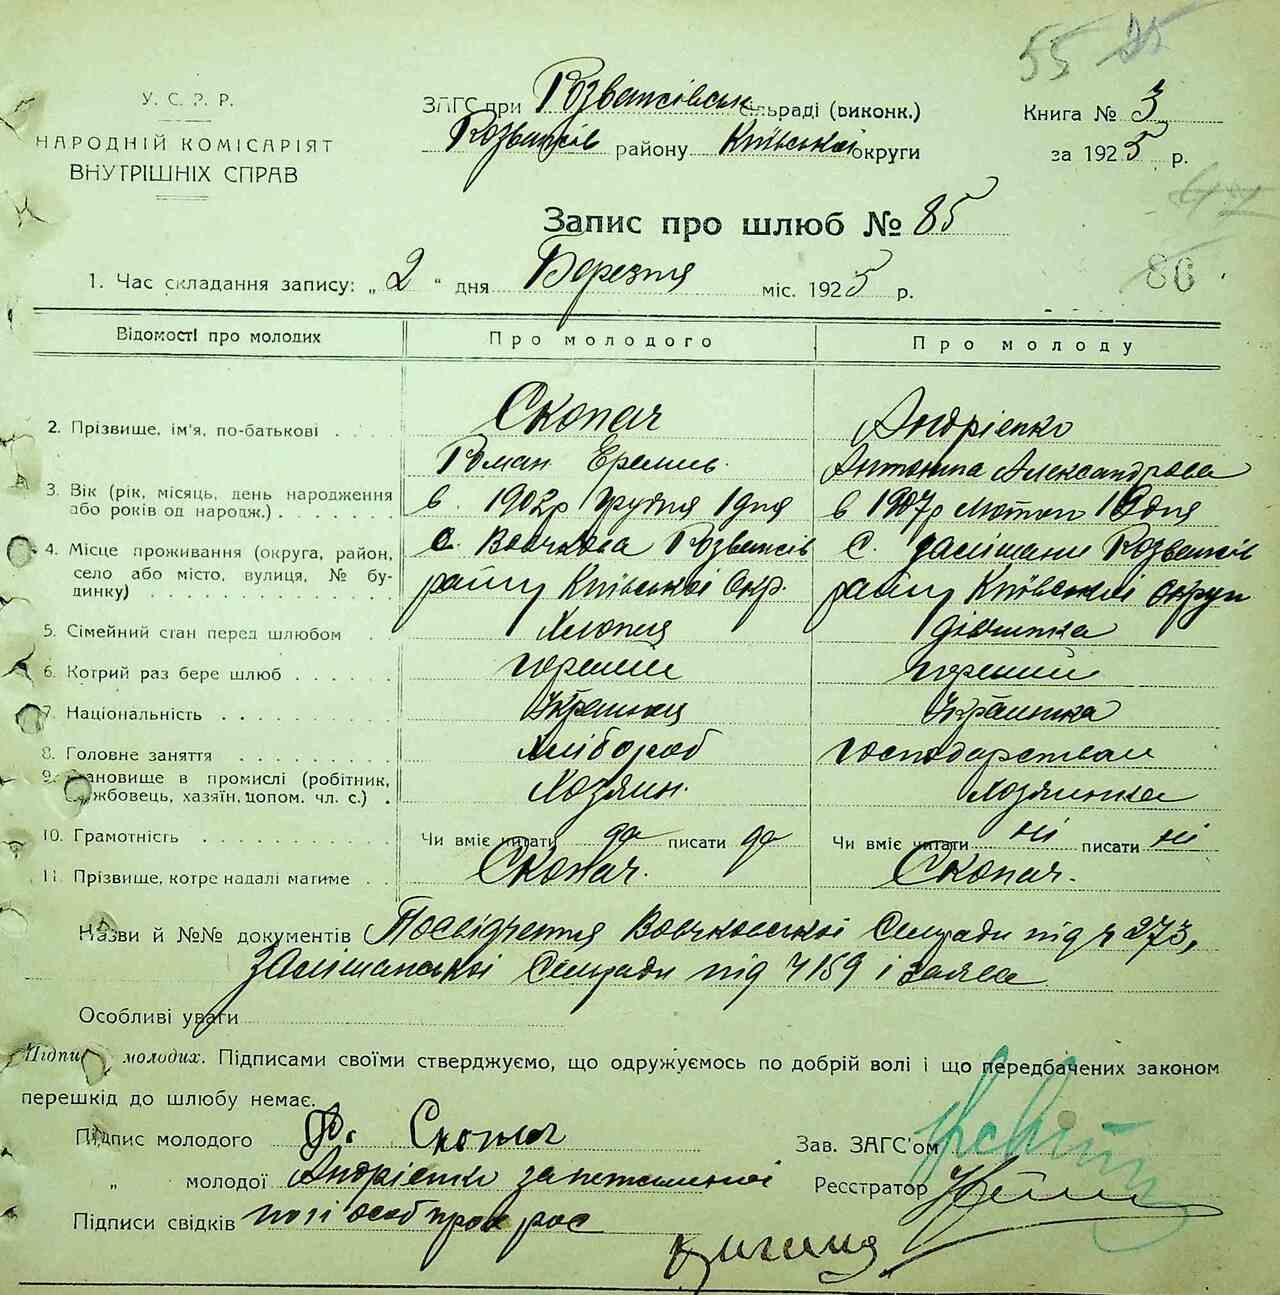 55 25
У. С. Р. Р.
НАРОДНІЙ КОМІСАРІЯТ
ВНУТРІШНІХ СПРАВ
ЗАГС при Розважівськ сільраді (виконк.)
Розважів району Київської округи
Книга № 3
за 1925 р.
Запис про шлюб № 85
86
1. Час складання запису: „ 2 “ дня Березня міс. 1925 р.
Відомості про молодих Про молодого Про молоду
2. Прізвище, ім'я, по-батькові Скопач Андрієнко
Роман Еремив. Антонина Александрова
3. Вік (рік, місяць, день народження або років од народж.) в. 1902р Грудня 1 дня в 1907р Лютого дня
4. Місце проживання (округа, район, село або місто, вулиця, № будинку) с. Вовчкова Розважів с. Залішани Розважів
райну Київської Окр. райну Київської округи
5. Сімейний стан перед шлюбом Хлопец дівчинка
6. Котрий раз бере шлюб перший перший
7. Національність Українец Українка
8. Головне заняття хлібороб господарством
9. Становище в промислі (робітник, службовець, хазяїн, допом. чл. с.) Хозяин. хозяинка
10. Грамотність Чи вміє читати да писати да Чи вміє читати ні писати ні
11. Прізвище, котре надалі матиме Скопач. Скопач.
Назви й №№ документів Посвідчення Вовчковської Сельради під ч 273,
Залішанської Сельради під ч 159 і заява
Особливі уваги
Підпис молодих. Підписами своїми стверджуємо, що одружуємось по добрій волі і що передбачених законом
перешкід до шлюбу немає.
Підпис молодого Р. Скопач Зав. ЗАГС'ом
„ молодої Андрієнко Реєстратор
Підписи свідків